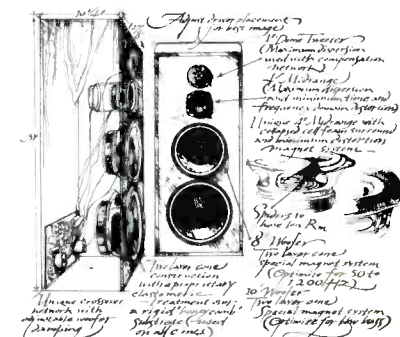 Adjust driver placement
for best image
1" Dome Tweeter
(Maximum dispersion
used with compensation
network)
Midrange
(Maximum dispersion
and minimum time and
frequency domain distortion)
Unique 4" Midrange with
collapsed cell foam surround
and minimum distortion
magnet system
Spiders to
have low Rm
8" Woofer
Two layer cone
Special magnet system
(Optimize for 50 to
1200 Hz)
10" Woofer
Two layer cone
Special magnet system
(Optimize for low bass)
Two layer cone
construction
with a proprietary
elastomeric
treatment over
a rigid "honeycomb"
substrate (used
on all cones)
Unique crossover
network with
adjustable woofer
damping